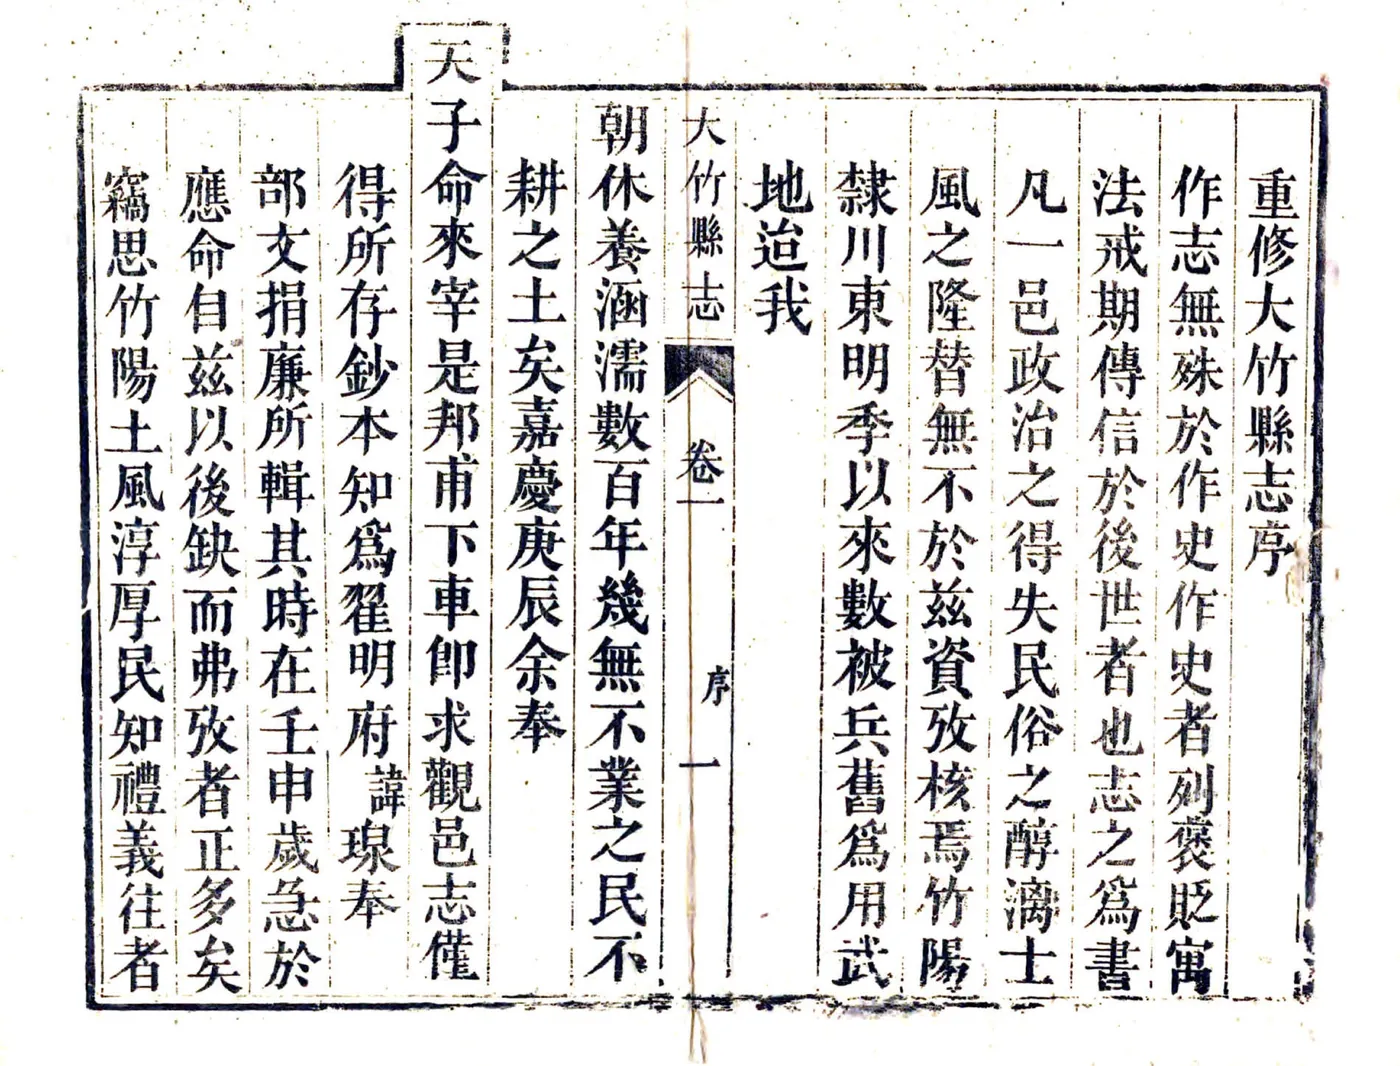 重修大竹縣志序
作志無殊於作史作史者列褒貶寓
法戒期傳信於後世者也志之爲書
凡一邑政治之得失民俗之醇漓士
風之隆替無不於茲資攷核焉竹陽
隸川東明季以來數被兵舊爲用武
地迨我
大竹縣志 卷一 序 一
朝休養涵濡數百年幾無不業之民不
耕之土矣嘉慶庚辰余奉
天子命來宰是邦甫下車卽求觀邑志僅
得所存鈔本知爲翟明府諱瑔奉
部文捐廉所輯其時在壬申歲急於
應命自茲以後缺而弗攷者正多矣
竊思竹陽土風淳厚民知禮義往者